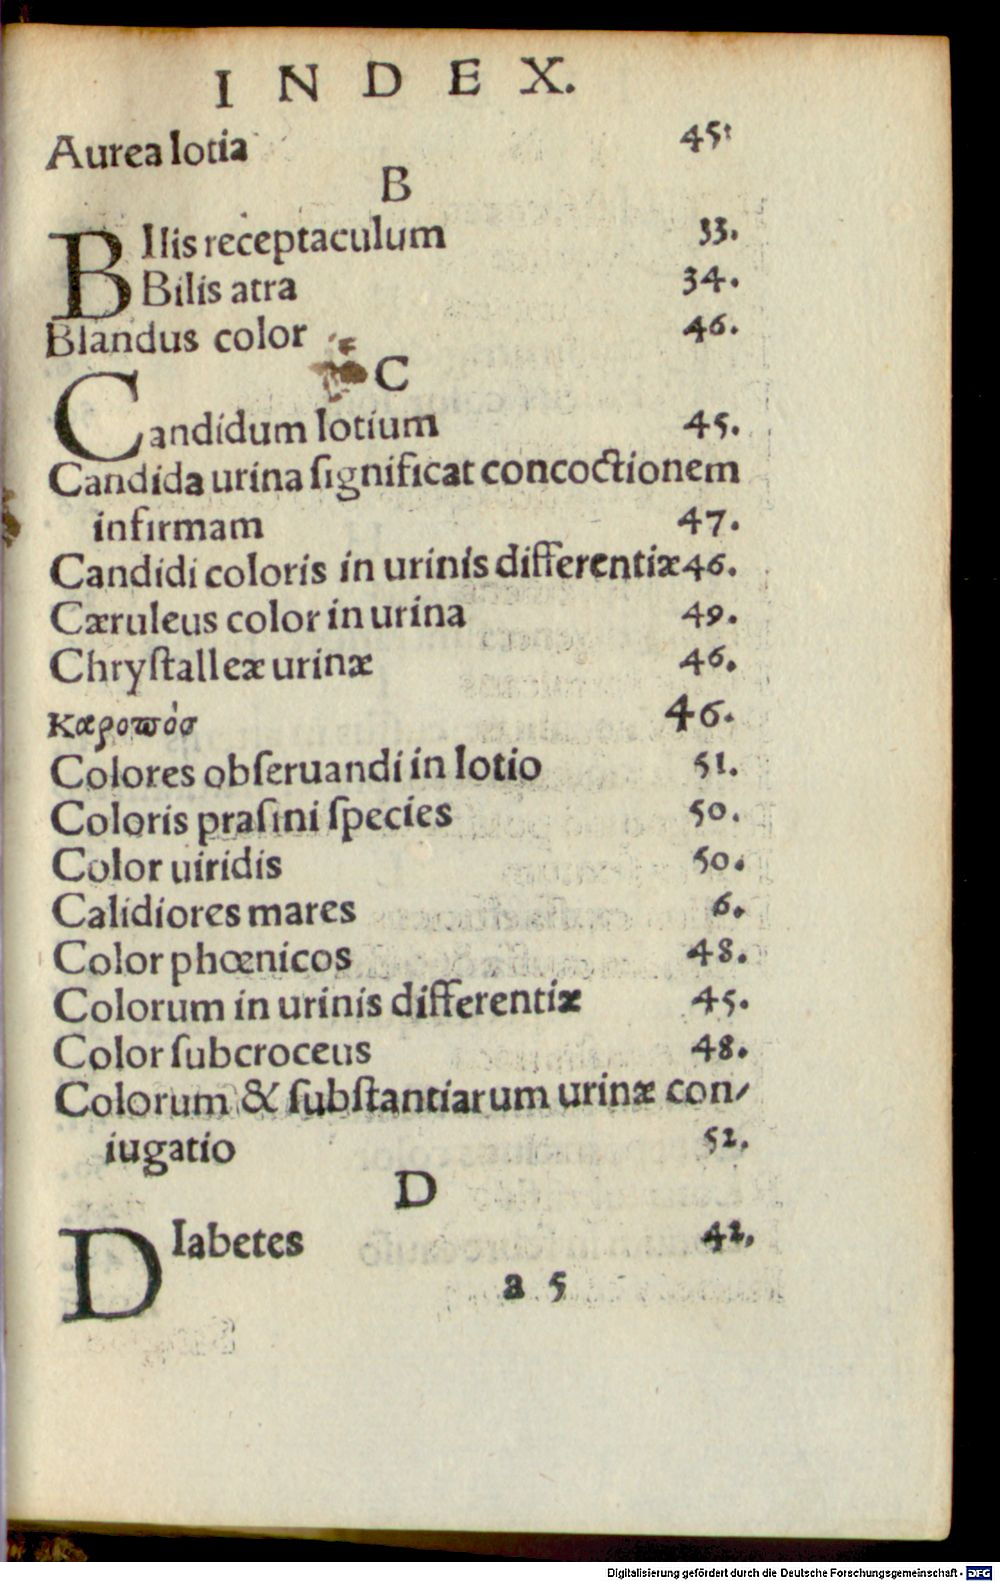 INDEX.
Aurea lotia 45.
B
BIlis receptaculum 33.
Bilis atra 34.
Blandus color 46.
C
Candidum lotium 45.
Candida urina ſignificat concoctionem
infirmam 47.
Candidi coloris in urinis differentiæ 46.
Cæruleus color in urina 49.
Chryſtalleæ urinæ 46.
καροπόσ 46.
Colores obſeruandi in lotio 51.
Coloris praſini ſpecies 50.
Color uiridis 50.
Calidiores mares 6.
Color phœnicos 48.
Colorum in urinis differentiæ 45.
Color ſubcroceus 48.
Colorum & ſubſtantiarum urinæ con/
iugatio 52.
D
DIabetes 42.
a 5
Digitalisierung gefördert durch die Deutsche Forschungsgemeinschaft - DFG